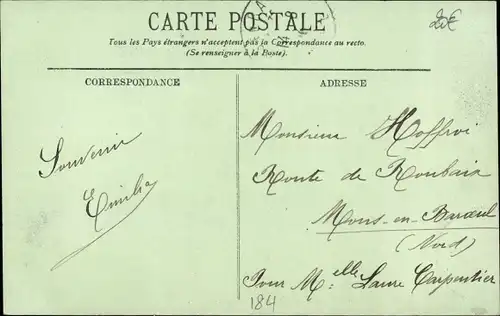 CARTE POSTALE
20€
Tous les Pays étrangers n'acceptent pas la Correspondance au recto.
(Se renseigner à la Poste).
CORRESPONDANCE
Souvenir
Emilia
ADRESSE
Monsieur Hoffroi
Route de Roubaix
Mons-en-Baroeul
(Nord)
Pour Melle Laure Carpentier
184